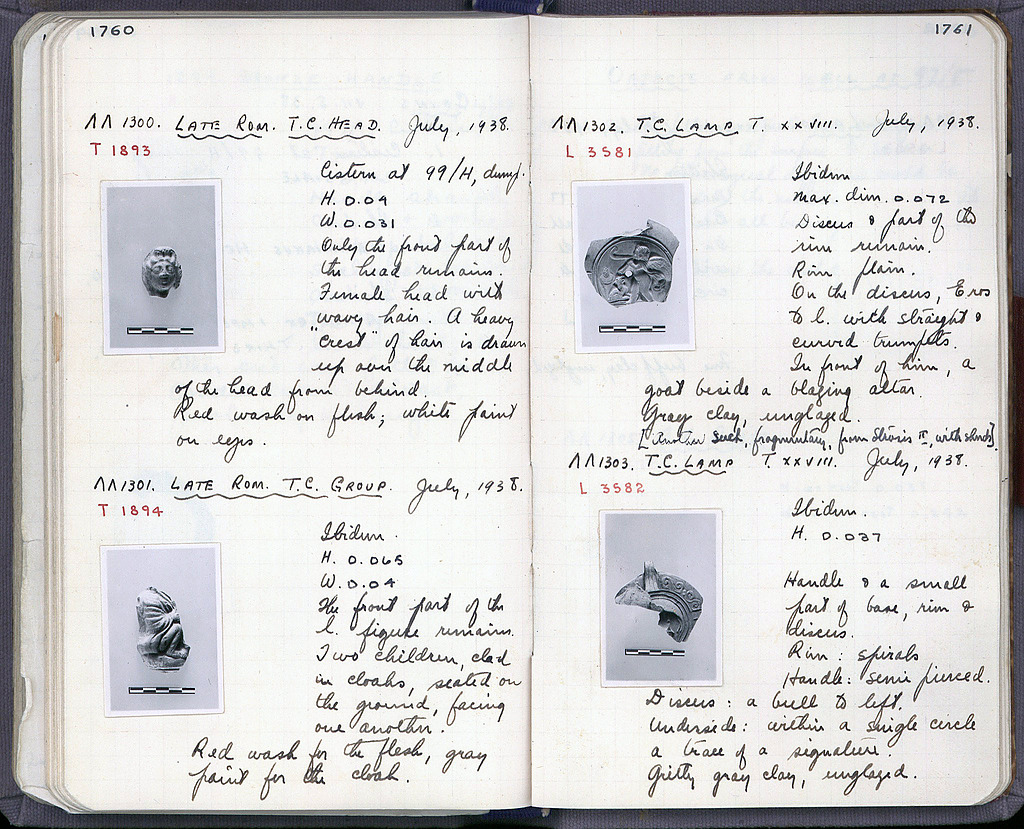 1760
ΛΛ 1300. LATE ROM. T.C. HEAD. July, 1938.
T 1893
Cistern at 99/Η, dump.
H. 0.04
W. 0.031
Only the front part of
the head remains.
Female head with
wavy hair. A heavy
"crest" of hair is drawn
up over the middle
of the head from behind.
Red wash on flesh; white paint
on eyes.
ΛΛ 1301. LATE ROM. T.C. GROUP. July, 1938.
T 1894
Ibidum.
H. 0.065
W. 0.04
The front part of the
l. figure remains.
Two children, clad
in cloaks, seated on
the ground, facing
one another.
Red wash for the flesh, gray
paint for the cloak.
1761
ΛΛ 1302. T.C. LAMP T. XXVIII. July, 1938.
L 3581
Ibidum
Max. dim. 0.072
Discus & part of the
rim remain.
Rim plain.
On the discus, Eros
to l. with straight &
curved trumpets.
In front of him, a
goat beside a blazing altar.
Gray clay, unglazed.
[Another such, fragmentary, from Stosis π, with sherds].
ΛΛ 1303. T.C. LAMP T. XXVIII. July, 1938.
L 3582
Ibidum.
H. 0.037
Handle & a small
part of base, rim &
discus.
Rim: spirals
Handle: semi pierced.
Discus: a bull to left.
Underside: within a single circle
a trace of a signature.
Gritty gray clay, unglazed.